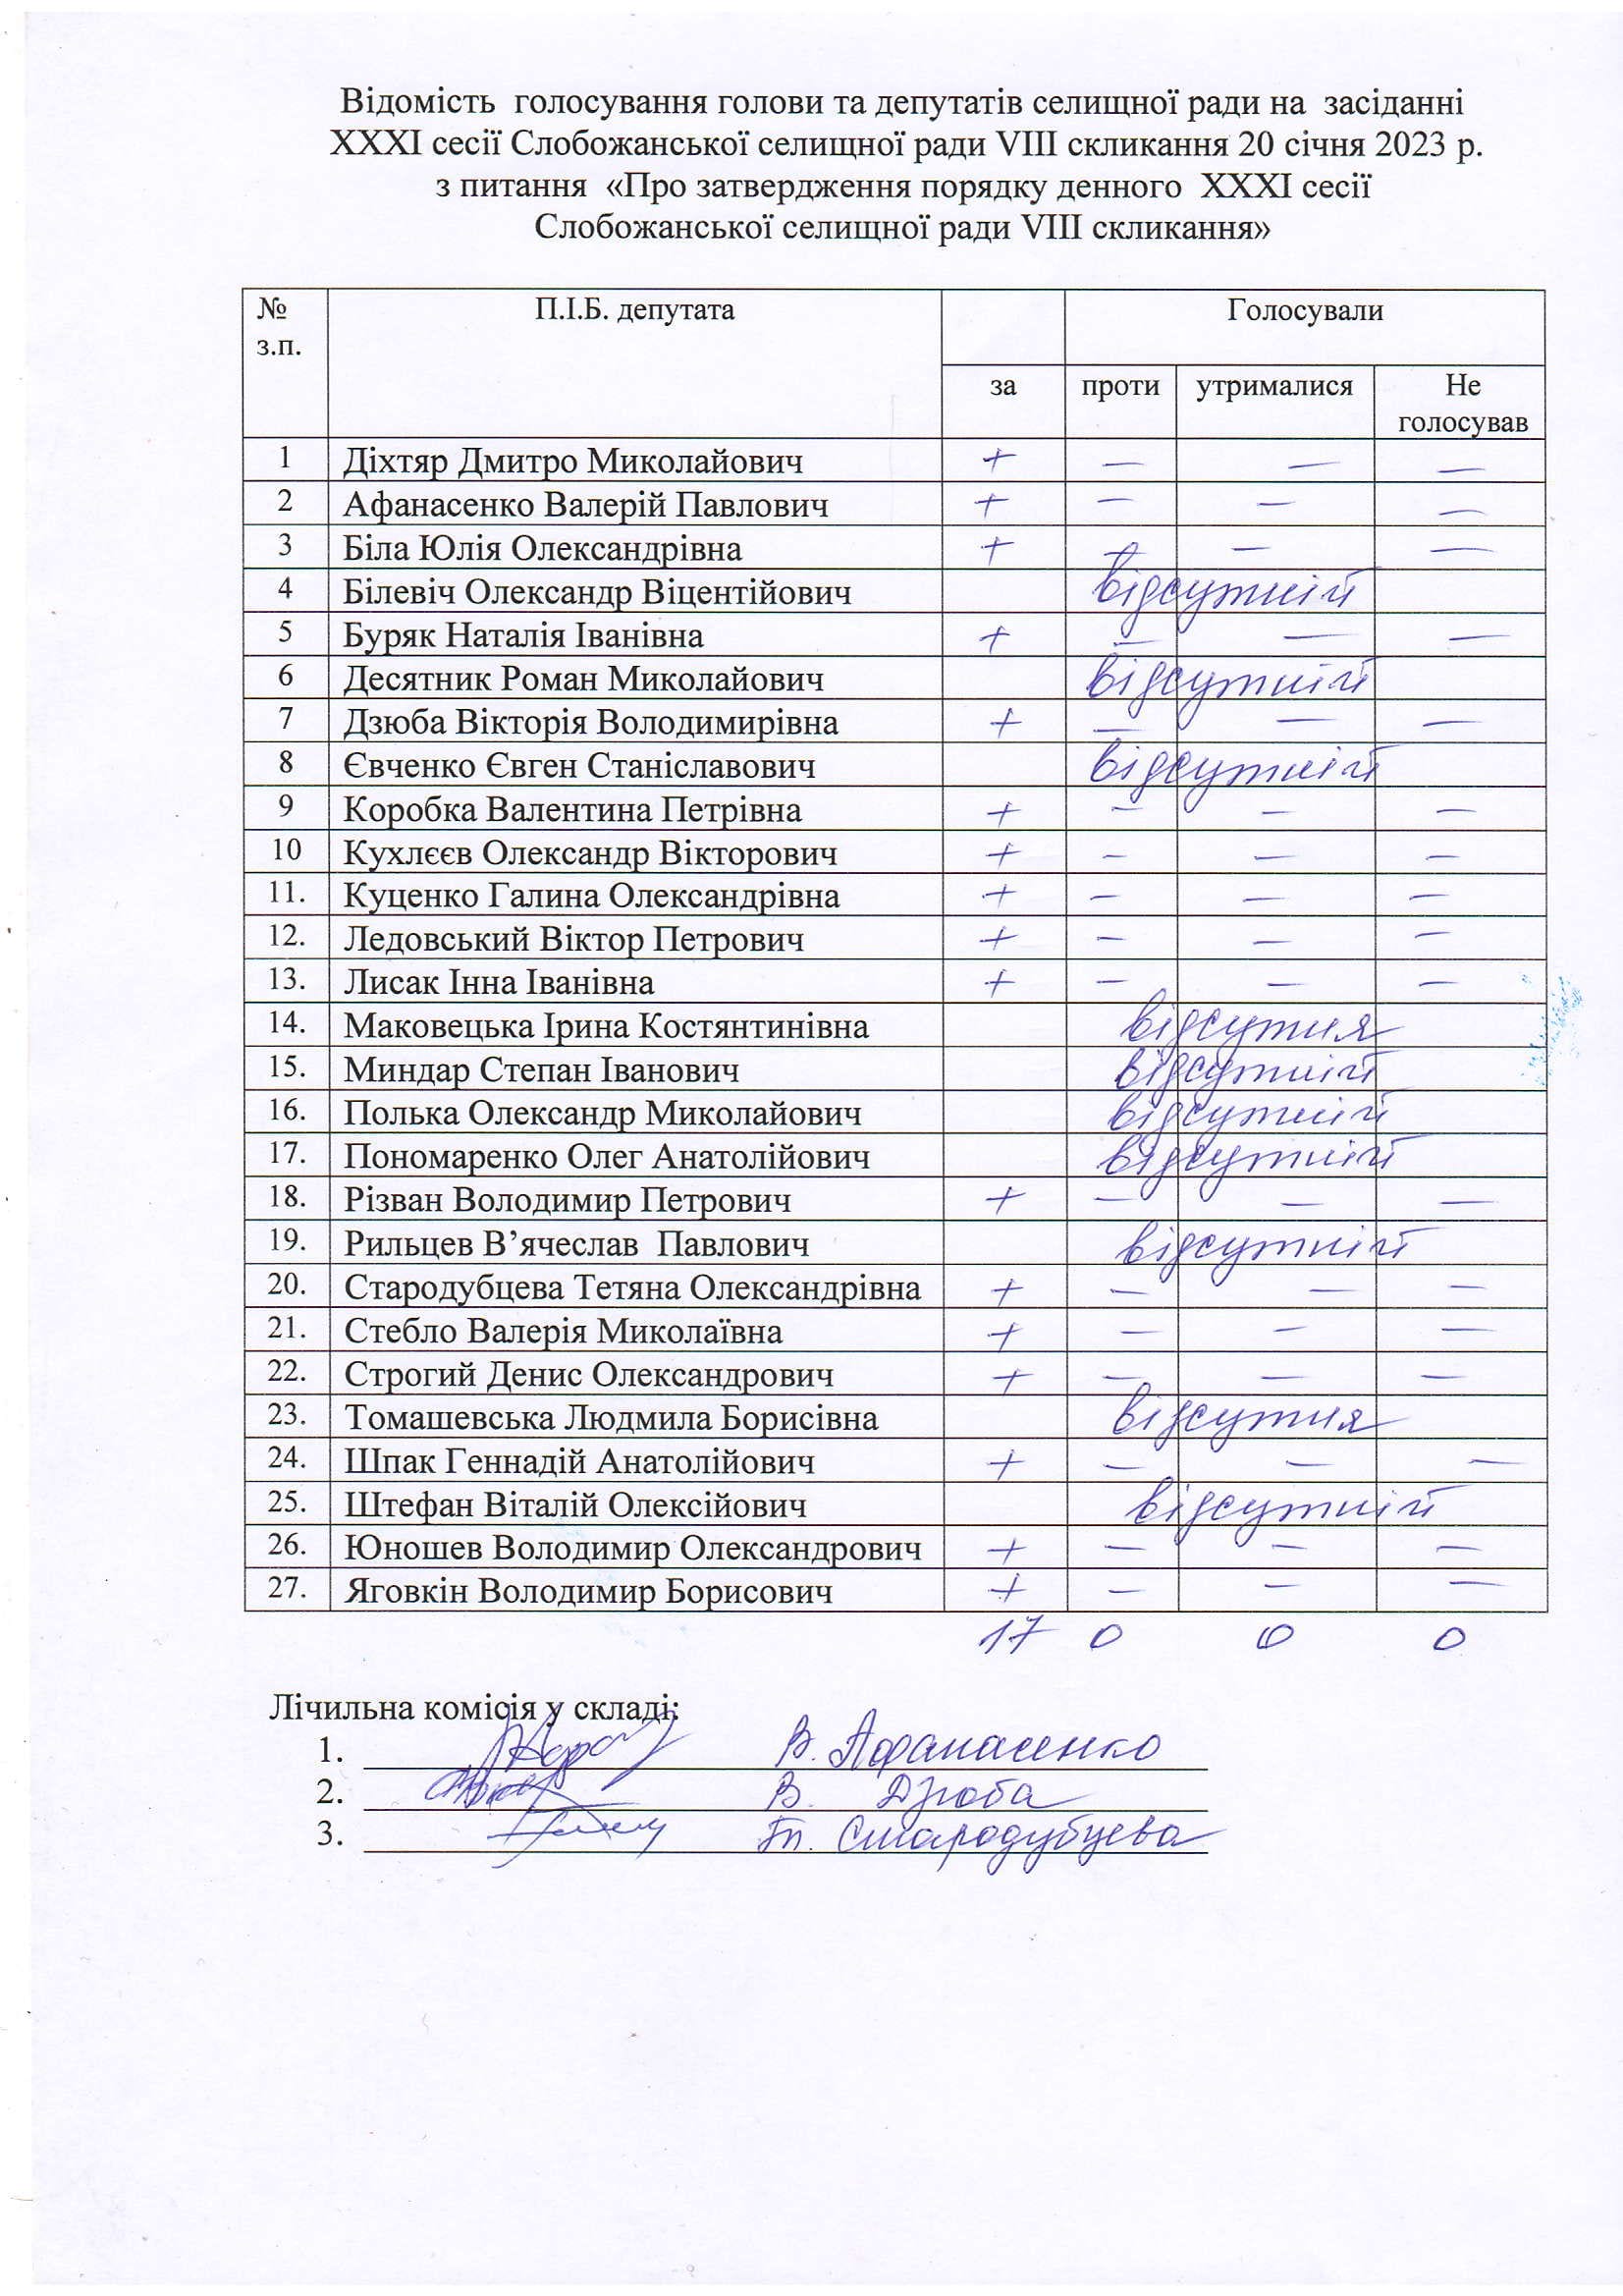 Відомість голосування голови та депутатів селищної ради на засіданні
XXXI сесії Слобожанської селищної ради VIII скликання 20 січня 2023 р.
з питання «Про затвердження порядку денного XXXI сесії
Слобожанської селищної ради VIII скликання»
№ з.п. П.І.Б. депутата Голосували
за проти утрималися Не голосував
1 Діхтяр Дмитро Миколайович + — — —
2 Афанасенко Валерій Павлович + — — —
3 Біла Юлія Олександрівна + — — —
4 Білевіч Олександр Віцентійович відсутній
5 Буряк Наталія Іванівна + — — —
6 Десятник Роман Миколайович відсутній
7 Дзюба Вікторія Володимирівна + — — —
8 Євченко Євген Станіславович відсутній
9 Коробка Валентина Петрівна + — — —
10 Кухлєєв Олександр Вікторович + — — —
11. Куценко Галина Олександрівна + — — —
12. Ледовський Віктор Петрович + — — —
13. Лисак Інна Іванівна + — — —
14. Маковецька Ірина Костянтинівна відсутня
15. Миндар Степан Іванович відсутній
16. Полька Олександр Миколайович відсутній
17. Пономаренко Олег Анатолійович відсутній
18. Різван Володимир Петрович + — — —
19. Рильцев В’ячеслав Павлович відсутній
20. Стародубцева Тетяна Олександрівна + — — —
21. Стебло Валерія Миколаївна + — — —
22. Строгий Денис Олександрович + — — —
23. Томашевська Людмила Борисівна відсутня
24. Шпак Геннадій Анатолійович + — — —
25. Штефан Віталій Олексійович відсутній
26. Юношев Володимир Олександрович + — — —
27. Яговкін Володимир Борисович + — — —
17 0 0 0
Лічильна комісія у складі:
1. В. Афанасенко
2. В. Дзюба
3. Т. Стародубцева